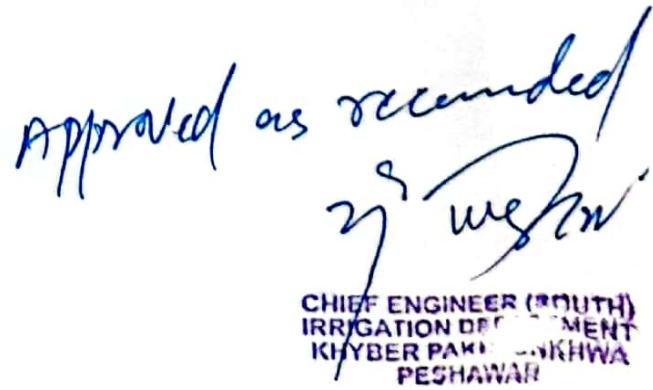 Approved as recomnded
CHIEF ENGINEER (SOUTH)
IRRIGATION DEPARTMENT
KHYBER PAKHTUNKHWA
PESHAWAR